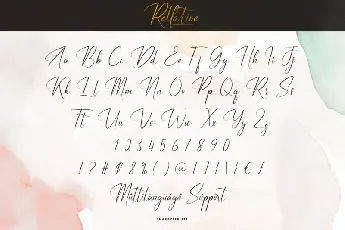 Relfative
Aa Bb Cc Dd Ee Ff Gg Hh Ii Jj
Kk Ll Mm Nn Oo Pp Qq Rr Ss
Tt Uu Vv Ww Xx Yy Zz
1 2 3 4 5 6 7 8 9 0
! ? # $ & % ( ) @ [ ] { } \ | € £
Multilanguage Support
CHARACTER SET